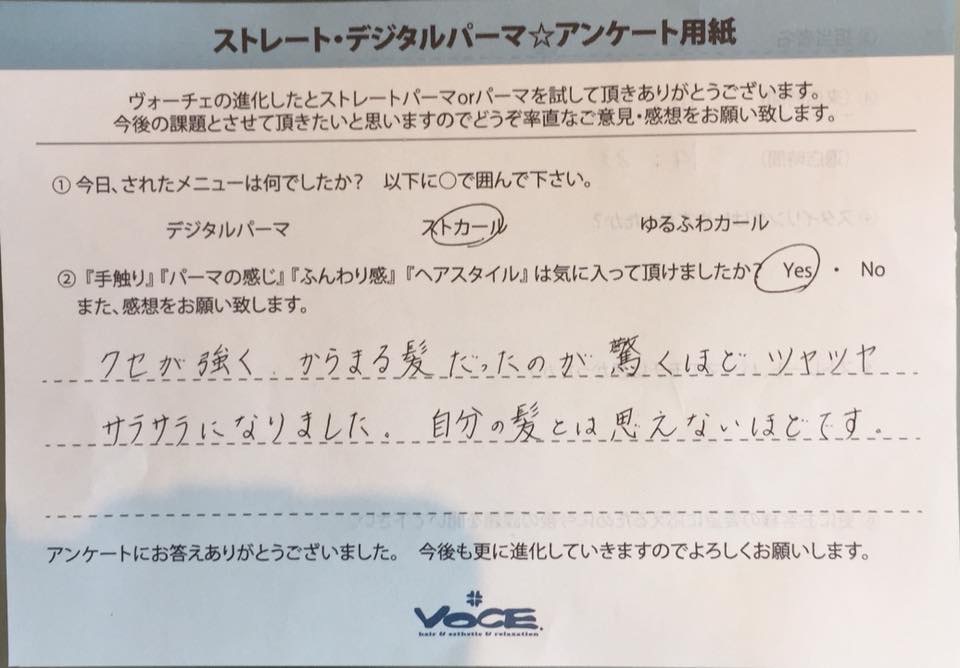 ストレート・デジタルパーマ☆アンケート用紙
ヴォーチェの進化したとストレートパーマorパーマを試して頂きありがとうございます。
今後の課題とさせて頂きたいと思いますのでどうぞ率直なご意見・感想をお願い致します。
① 今日、されたメニューは何でしたか？ 以下に○で囲んで下さい。
デジタルパーマ ストカール ゆるふわカール
② 『手触り』『パーマの感じ』『ふんわり感』『ヘアスタイル』は気に入って頂けましたか？ Yes ・ No
また、感想をお願い致します。
クセが強く、からまる髪だったのが驚くほどツヤツヤ
サラサラになりました。自分の髪とは思えないほどです。
アンケートにお答えありがとうございました。 今後も更に進化していきますのでよろしくお願いします。
VOCE.
hair & esthetic & relaxation